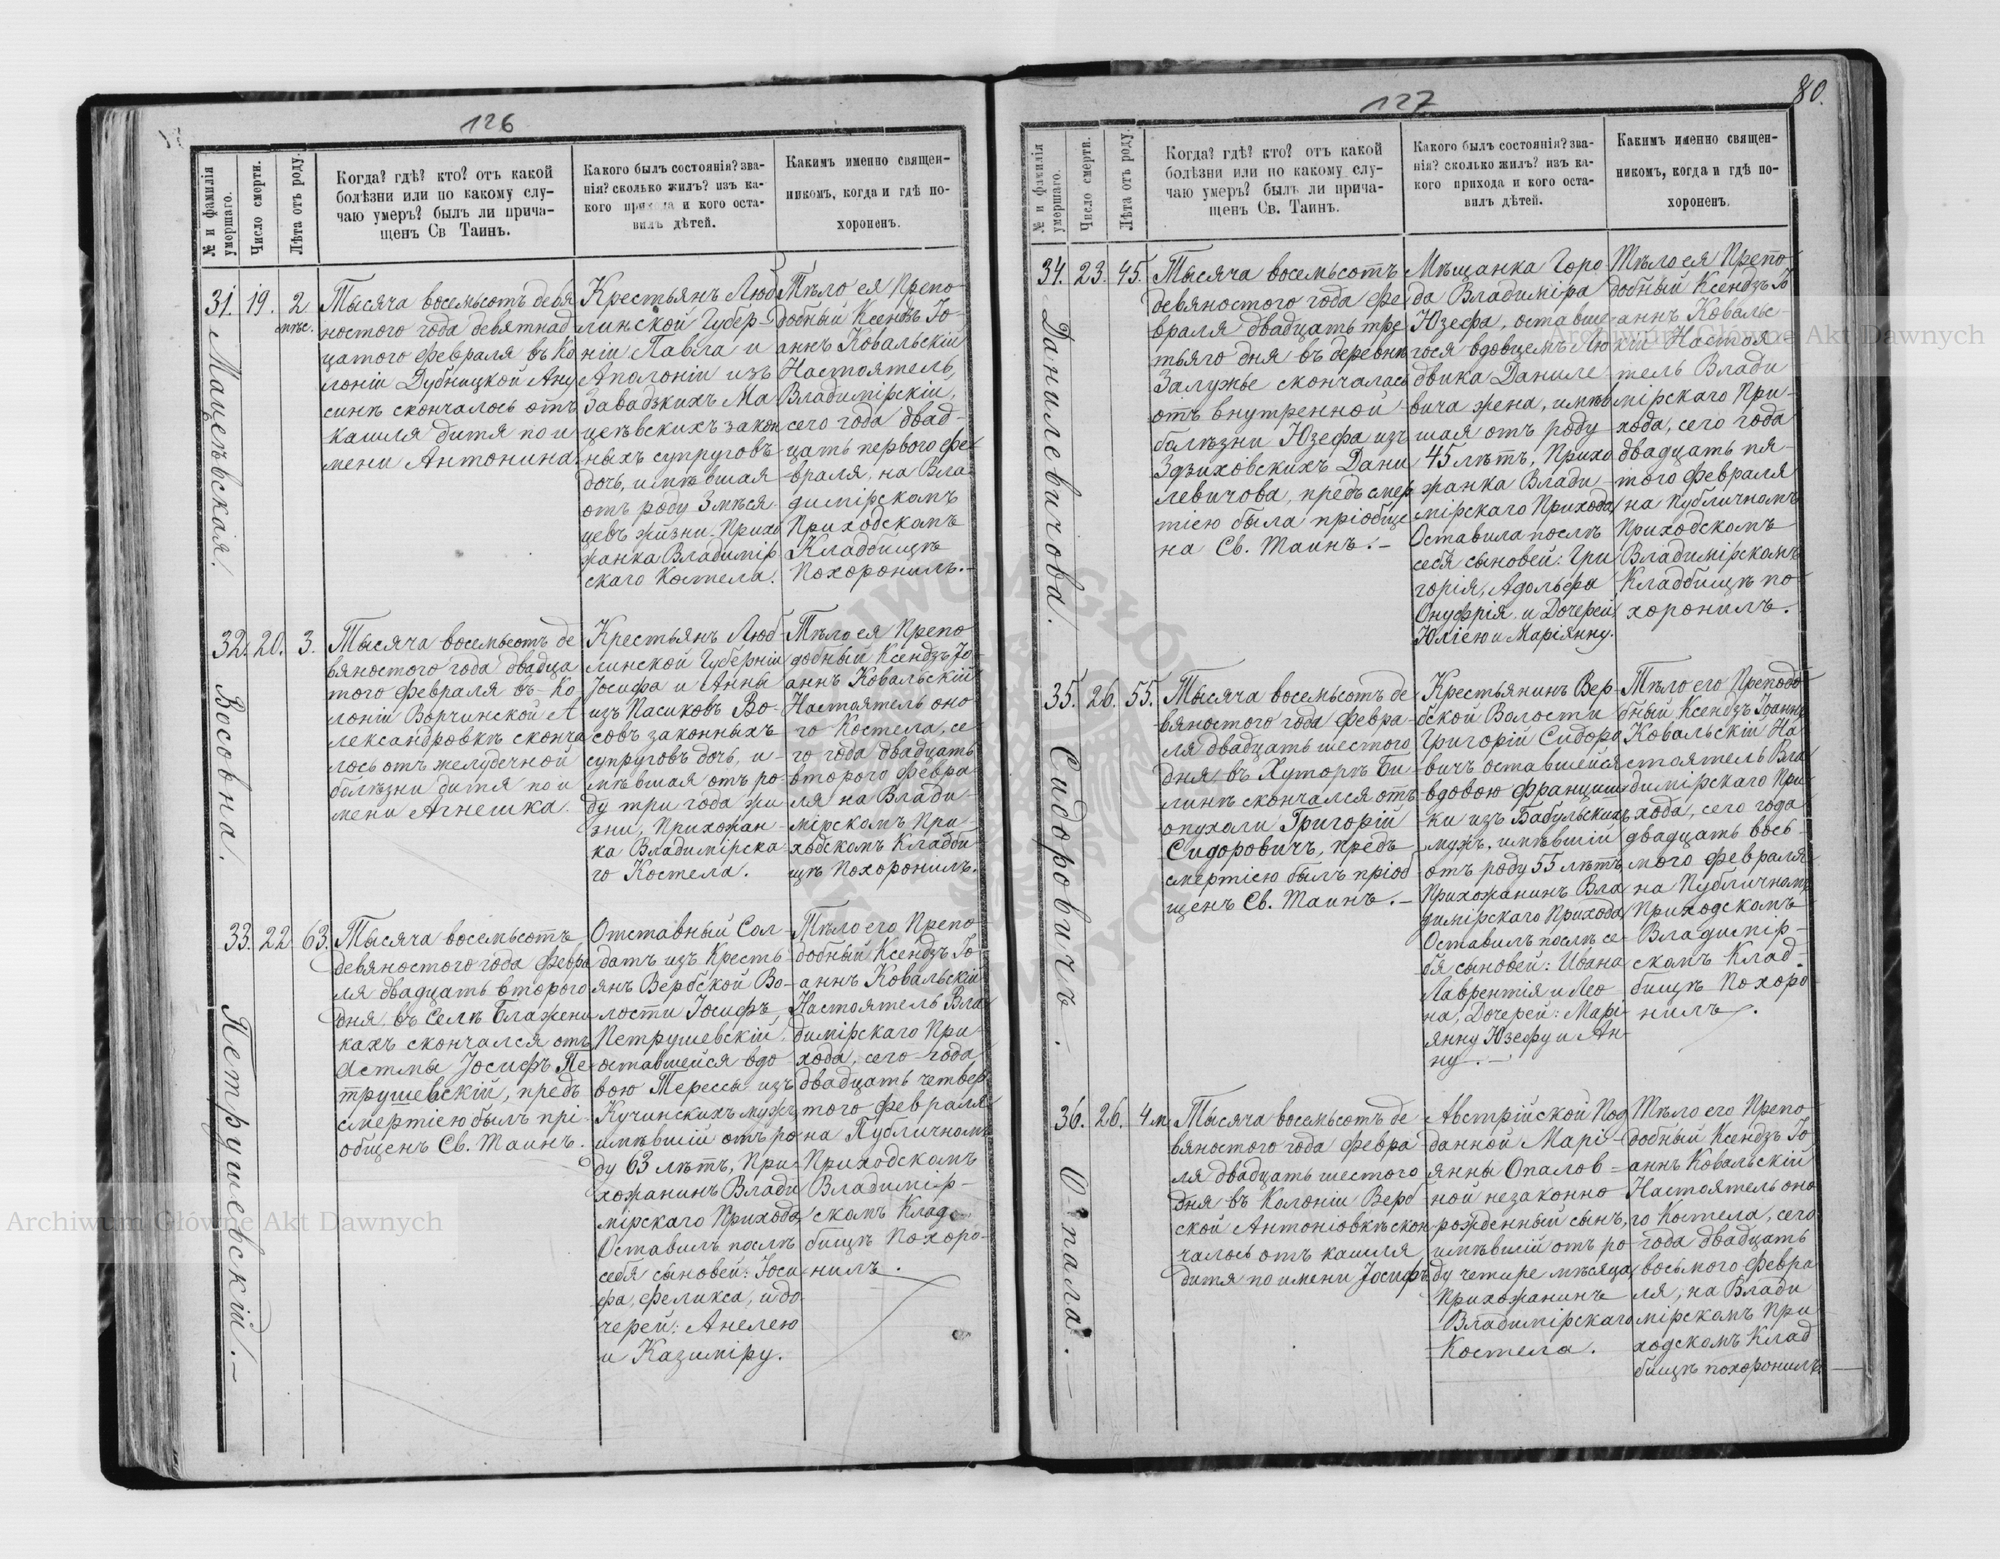 126
№ и фамилія умершаго.
Число смерти.
Лѣта отъ роду.
Когда? гдѣ? кто? отъ какой
болѣзни или по какому слу-
чаю умеръ? былъ ли прича-
щенъ Св Таинъ.
Какого былъ состоянія? зва-
нія? сколько жилъ? изъ ка-
кого прихода и кого оста-
вилъ дѣтей.
Какимъ именно священ-
никомъ, когда и гдѣ по-
хороненъ.
31. 19. 2
мѣс.
Мацеѣвская.
Тысяча восемьсотъ девя
ностого года девятнад
цатого февраля въ Ко
лоніи Дубницкой Ану
синѣ скончалось отъ
кашля дитя по и
мени Антонина.
Крестьянъ Люб
линской Губер-
ніи Павла и
Аполоніи изъ
Завадзкихъ Ма
цеѣвскихъ закон
ныхъ супруговъ
дочь, имѣвшая
отъ роду 3 мѣся
цевъ жизни. Прихо
жанка Владимір
скаго Костела.
Тѣло ея Препо
добный Ксендзъ Іо-
аннъ Ковальскій
Настоятель
Владимірскій,
сего года двад-
цать первого фе
враля, на Вла-
димірскомъ
Приходскомъ
Кладбищѣ
Похоронилъ.-
32. 20. 3.
Восовна.
Тысяча восемьсотъ де
вяностого года двадца
того февраля въ Ко
лоніи Ворчинской А
лександровкѣ сконча
лось отъ желудечной
болѣзни дитя по и
мени Агнешка.
Крестьянъ Люб
линской Губерніи
Іосифа и Анны
изъ Пасиковъ Во-
совъ законныхъ
супруговъ дочь, и-
мѣвшая отъ ро-
ду три года жи
зни, Прихожан-
ка Владимірска
го Костела.
Тѣло ея Препо
добный Ксендзъ Іо-
аннъ Ковальскій
Настоятель оно
го Костела, се-
го года двадцать
второго февра
ля на Влади-
мірскомъ При-
ходскомъ Кладби
щѣ Похоронилъ.
33. 22. 63.
Петрушевскій.-
Тысяча восемьсотъ
девяностого года февра
ля двадцать второго
дня, въ Селѣ Блажени
кахъ скончался отъ
Астмы Іосифъ Пе-
трушевскій, предъ
смертію былъ прі-
общенъ Св. Таинъ.
Отставный Сол-
датъ изъ Кресть
янъ Вербской Во-
лости Іосифъ
Петрушевскій
оставшейся вдо-
вою Терессы изъ
Кучинскихъ мужъ
имѣвшій отъ ро
ду 63 лѣтъ, При-
хожанинъ Влади
мірскаго Прихода
Оставилъ послѣ
себя сыновей: Іоси
фа, Феликса, и до-
черей: Анелею
и Казиміру.
Тѣло его Препо-
добный Ксендзъ Іо-
аннъ Ковальскій
Настоятель Вла
димірскаго При-
хода, сего-года
двадцать четвер
того февраля
на Публичномъ
Приходскомъ
Владимир-
скомъ Клад-
бищѣ Похоро-
нилъ.
127
80.
№ и фамилія умершаго.
Число смерти.
Лѣта отъ роду.
Когда? гдѣ? кто? отъ какой
болѣзни или по какому слу-
чаю умеръ? былъ ли прича-
щенъ Св. Таинъ.
Какого былъ состоянія? зва-
нія? сколько жилъ? изъ ка-
кого прихода и кого оста-
вилъ дѣтей.
Какимъ именно священ-
никомъ, когда и гдѣ по-
хороненъ.
34. 23. 45.
Данилевичова.
Тысяча восемьсотъ
девяностого года фе-
враля двадцать тре
тьяго дня въ деревнѣ
Залужье скончалась
отъ внутренной
болѣзни Юзефа изъ
Здзиховскихъ Дани
левичова, предъ смер
тію была пріобще
на Св. Таинъ.-
Мѣщанка Горо
да Владиміра
Юзефа, оставше-
гося вдовцемъ Лю
двика Даниле
вича жена, имѣв
шая отъ роду
45 лѣтъ, Прихо
жанка Влади-
мірскаго Прихода
Оставила послѣ
себя сыновей: Гри
горія, Адольфа
Онуфрія, и Дочерей,
Юлію и Маріянну.
Тѣло ея Препо-
добный Ксендзъ Іо
аннъ Ковальс-
кій Настоя-
тель Влади
мірскаго При-
хода, сего года
двадцать пя-
того февраля
на Публичномъ
Приходскомъ
Владимірскомъ
Кладбищѣ по-
хоронилъ.
35. 26. 55.
Сидоровичъ.
Тысяча восемьсотъ де
вяностого года февра-
ля двадцать шестого
дня, въ Хуторѣ Би-
линѣ скончался отъ
опухоли Григорій
Сидоровичъ, предъ
смертію былъ пріоб
щенъ Св. Таинъ.-
Крестьянинъ Вер-
бской Волости
Григорій Сидоро
вичъ оставшейся
вдовою Францишъ
ки изъ Бабульскихъ
мужъ, имѣвшій
отъ роду 55 лѣтъ
Прихожанинъ Вла
димірскаго Прихода
Оставилъ послѣ се-
бя сыновей: Ивана
Лаврентія и Лео
на, Дочерей: Марі-
янну Юзефу и Ан-
ну.-
Тѣло его Преподо
бный Ксендзъ Іоаннъ
Ковальскій На
стоятель Вла
димірскаго При
хода, сего года
двадцать вось-
мого февраля
на Публичномъ
Приходскомъ
Владимір-
скомъ Клад-
бищѣ Похоро
нилъ.
36. 26. 4 м.
Опала.-
Тысяча восемьсотъ де
вяностого года февра
ля двадцать шестого
дня въ Колоніи Верб
ской Антоніовкѣ скон
чалось отъ кашля
дитя по имени Іосифъ
Австрійской Под
данной Марі-
янны Опалов-
ной незаконно
рожденный сынъ,
имѣвшій отъ ро-
ду четыре мѣсяца,
Прихожанинъ
Владимірскаго
Костела.
Тѣло его Препо-
добный Ксендзъ Іо
аннъ Ковальскій
Настоятель оно
го Костела, сего
года двадцать
восьмого февра
ля, на Влади
мірскомъ При
ходскомъ Клад
бищѣ похоронилъ.
Archiwum Główne Akt Dawnych
Archiwum Główne Akt Dawnych